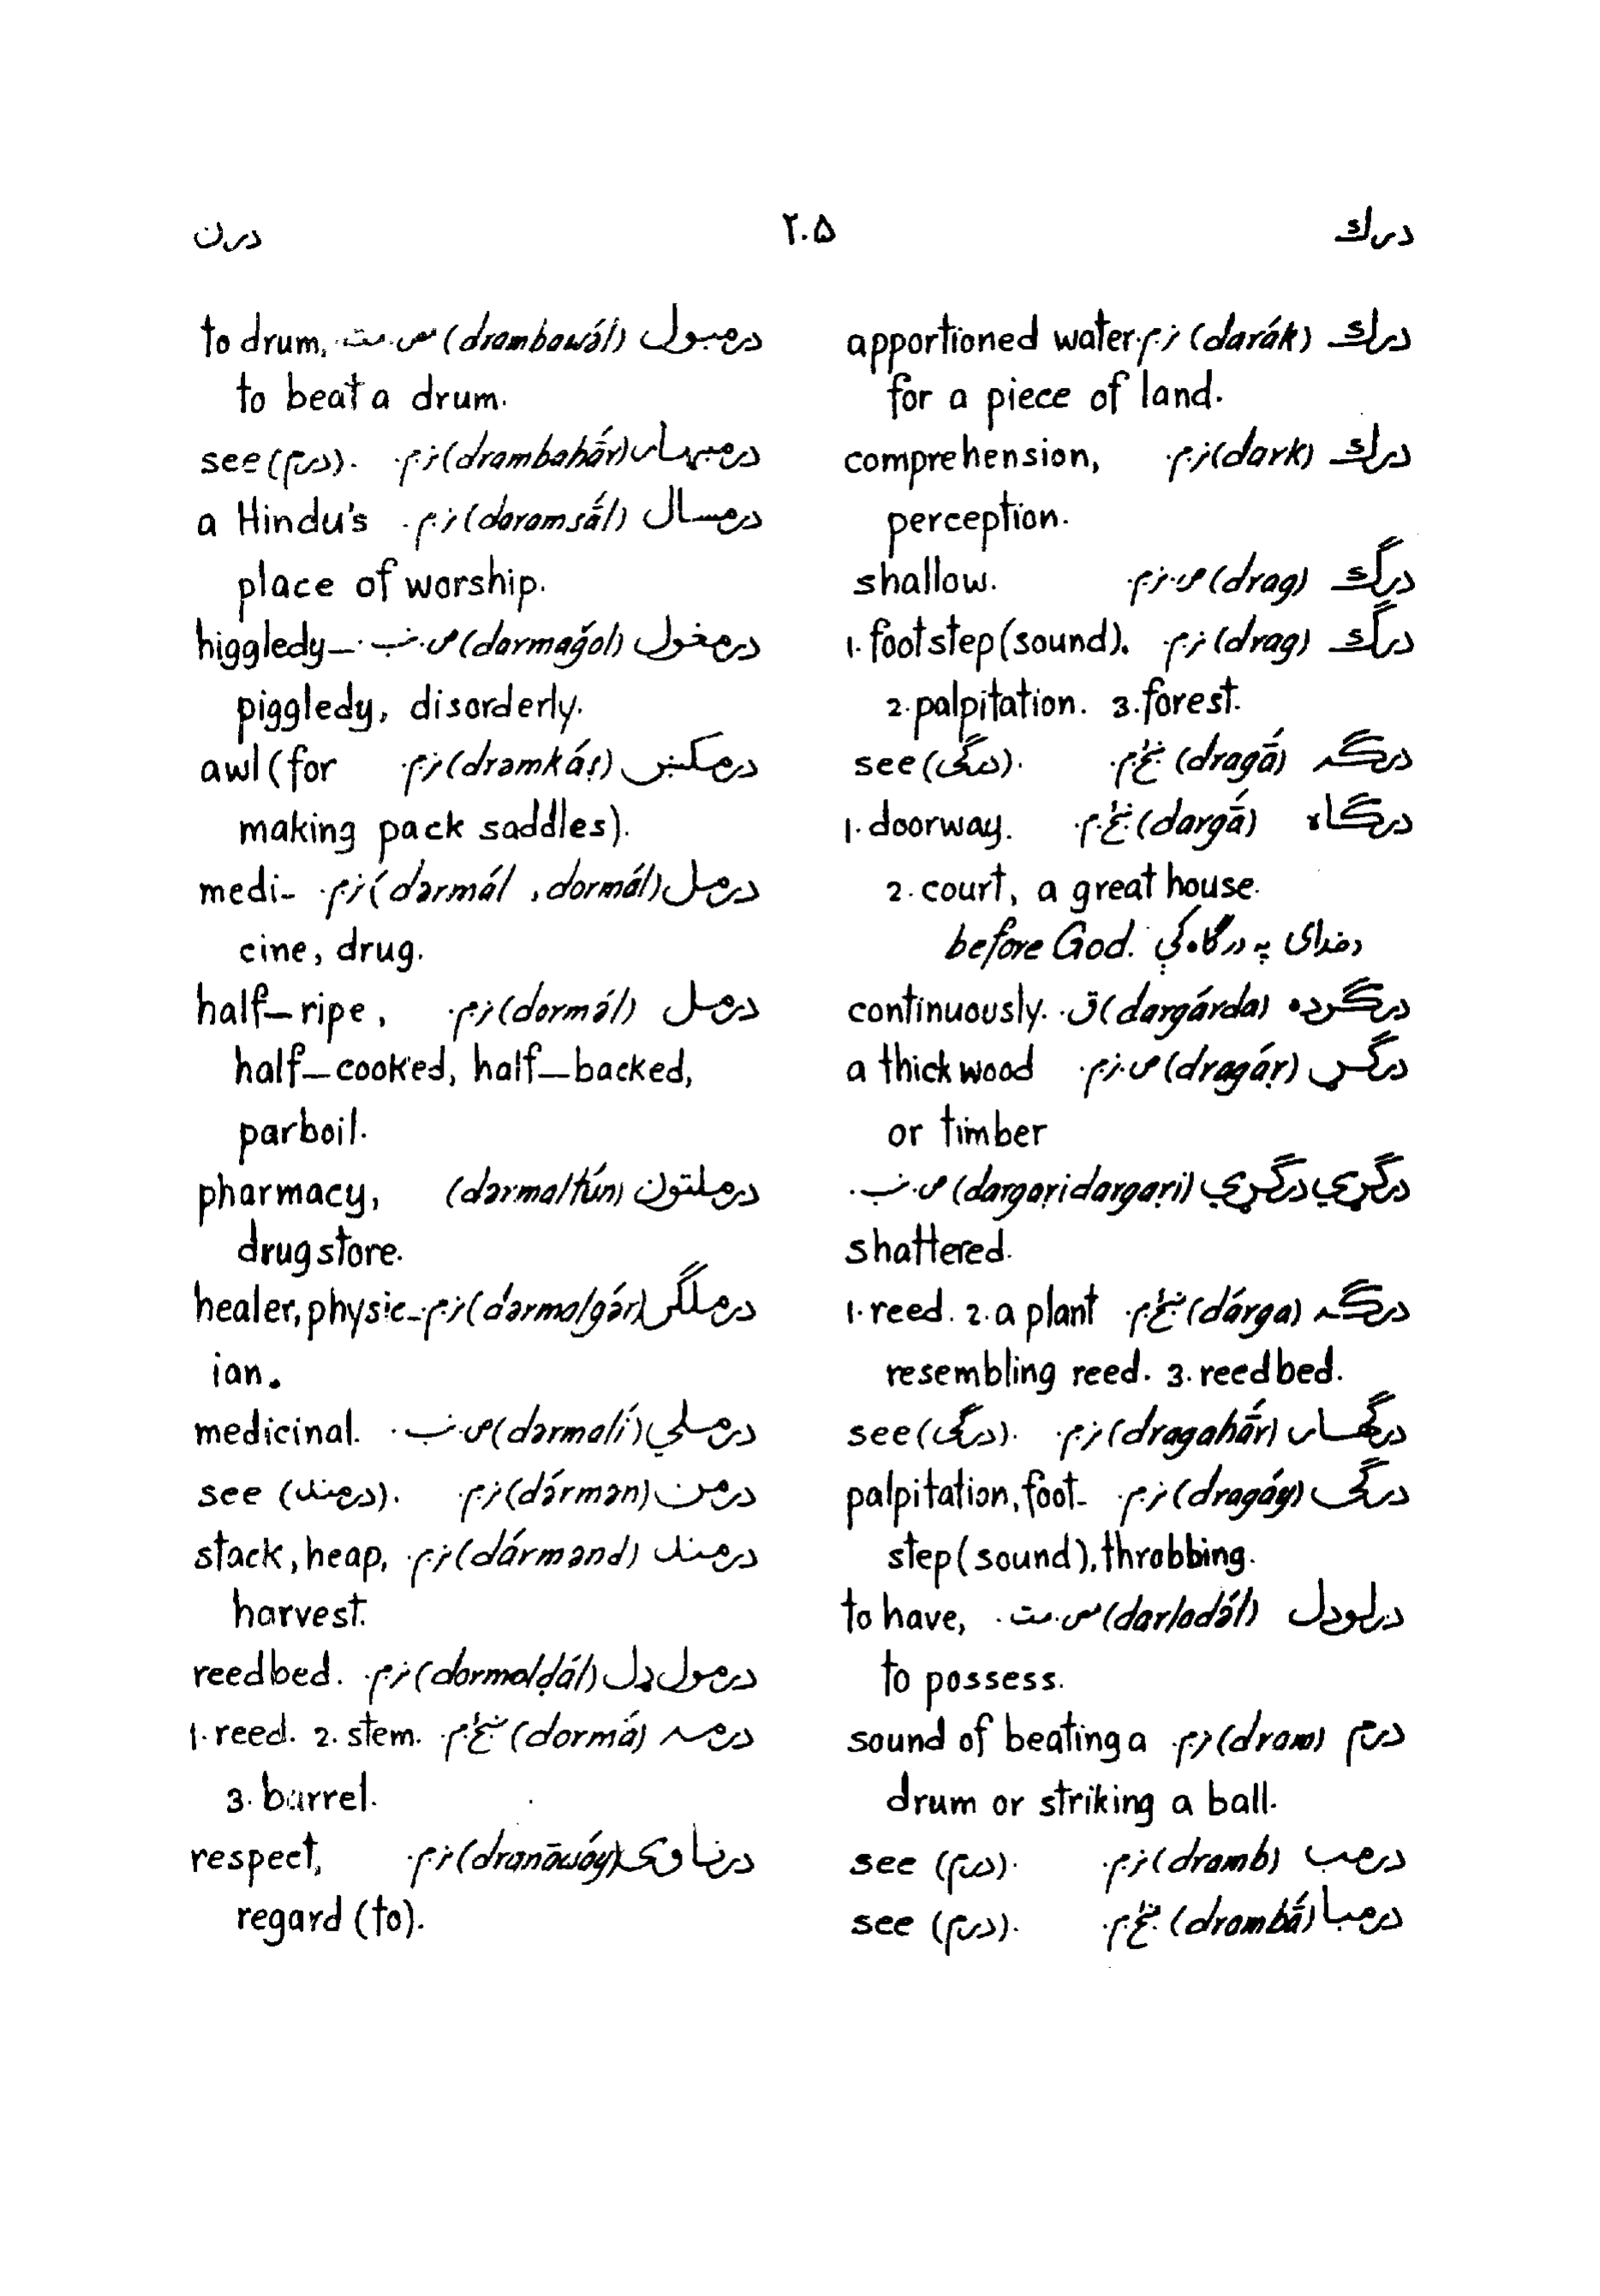 درك ۲۰۵ درن
درك (darák) ن.م. apportioned water
for a piece of land.
درك (dark) ن.م. comprehension,
perception.
درګ (drag) ص.ن.م. shallow.
درګ (drag) ن.م. 1. footstep (sound).
2. palpitation. 3. forest.
درګه (dragā́) ښځ.م. see (درګی).
درګاه (dargā́) ښځ.م. 1. doorway.
2. court, a great house.
دخدای په درګاه کې before God.
درګرده (dargárda) ق. continuously.
درګړ (dragáṛ) ص.ن.م. a thick wood
or timber
درګړي درګړي (dargaṛidargaṛi) ص.نب.
shattered.
درګه (dárga) ښځ.م. 1. reed. 2. a plant
resembling reed. 3. reedbed.
درګهار (dragahā́r) ن.م. see (درګی).
درګی (dragáy) ن.م. palpitation, foot-
step (sound), throbbing.
درلودل (darlodə́l) مص.مت. to have,
to possess.
درم (dram) ن.م. sound of beating a
drum or striking a ball.
درمب (dramb) ن.م. see (درم).
درمبا (drambā́) ښځ.م. see (درم).
درمبول (drambawə́l) مص.مت. to drum,
to beat a drum.
درمبهار (drambahā́r) ن.م. see (درم).
درمسال (daramsā́l) ن.م. a Hindu's
place of worship.
درمغول (darmağol) ص.نب. higgledy-
piggledy, disorderly.
درمکښ (drəmkáṣ) ن.م. awl (for
making pack saddles).
درمل (dərmál , dormál) ن.م. medi-
cine, drug.
درمل (dormə́l) ن.م. half-ripe,
half-cooked, half-backed,
parboil.
درملتون (dərmaltún) pharmacy,
drugstore.
درملګر (dərmalgár) ن.م. healer, physic-
ian.
درملي (dərmalí) ص.نب. medicinal.
درمن (də́rmən) ن.م. see (درمند).
درمند (dármənd) ن.م. stack, heap,
harvest.
درمول ډل (dormolḍál) ن.م. reedbed.
درمه (dormá) ښځ.م. 1. reed. 2. stem.
3. barrel.
درناوی (dranāwáy) ن.م. respect,
regard (to).